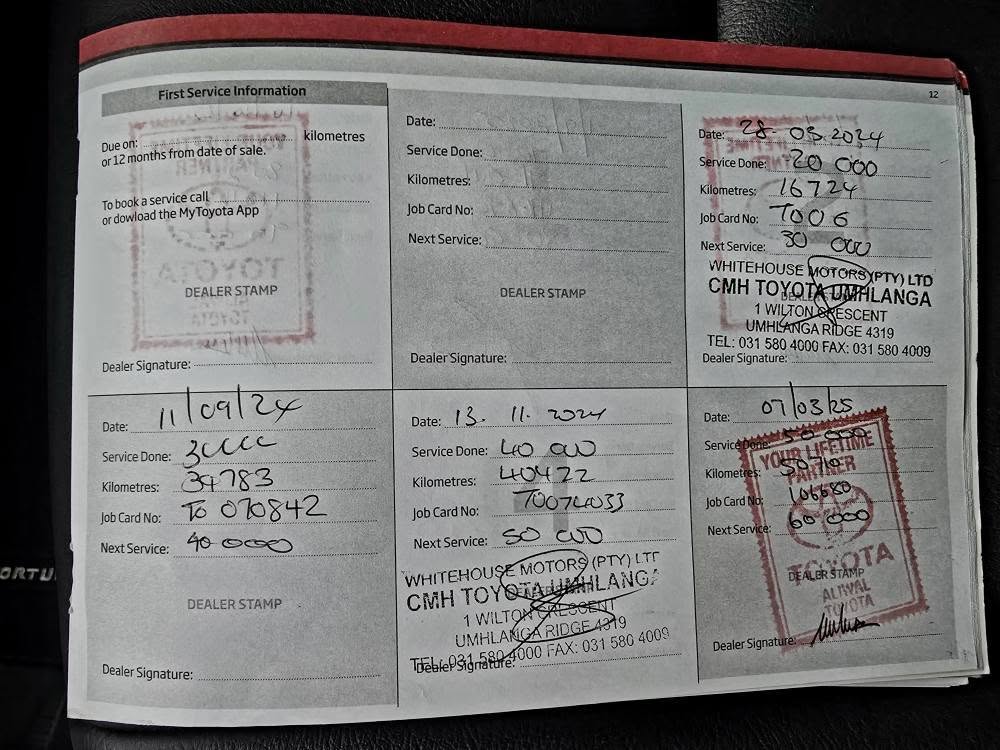 12
First Service Information
Due on: kilometres
or 12 months from date of sale.
To book a service call
or dowload the MyToyota App
DEALER STAMP
Dealer Signature:
Date:
Service Done:
Kilometres:
Job Card No:
Next Service:
DEALER STAMP
Dealer Signature:
Date: 28.03.2024
Service Done: 20 000
Kilometres: 16724
Job Card No: T006
Next Service: 30 000
WHITEHOUSE MOTORS (PTY) LTD
CMH TOYOTA UMHLANGA
1 WILTON CRESCENT
UMHLANGA RIDGE 4319
TEL: 031 580 4000 FAX: 031 580 4009
Dealer Signature:
Date: 11/09/24
Service Done:
Kilometres: 34783
Job Card No: To 070842
Next Service: 40000
DEALER STAMP
Dealer Signature:
Date: 13.11.2024
Service Done: 40 000
Kilometres: 40422
Job Card No: T0074033
Next Service: 50 000
WHITEHOUSE MOTORS (PTY) LTD
CMH TOYOTA UMHLANGA
1 WILTON CRESCENT
UMHLANGA RIDGE 4319
TEL: 031 580 4000 FAX: 031 580 4009
Dealer Signature:
Date: 07/03/25
Service Done: 50 000
Kilometres: 50710
Job Card No: 106680
Next Service: 60 000
YOUR LIFETIME
PARTNER
TOYOTA
DEALER STAMP
ALIWAL
TOYOTA
Dealer Signature:
ORTU